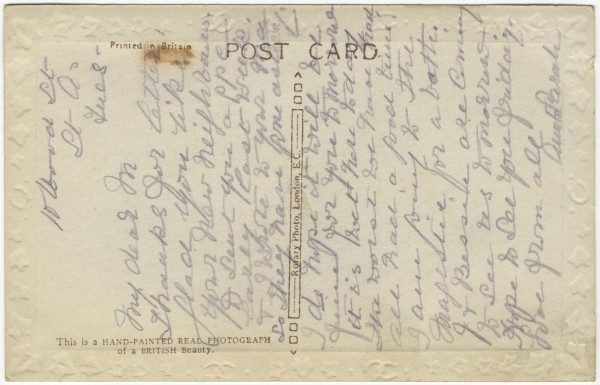 Printed in Britain
POST CARD
Rotary Photo, London, E.C.
This is a HAND-PAINTED REAL PHOTOGRAPH
of a BRITISH Beauty.
10 Wood St
St A.
Tues
My dear M
Thanks for letter
Glad you like
your New Neighbours
I sent you a paper
early last week
I wrote to your
So they have
I do hope it will be
fine for you to morrow
it is hot here today
the worst we have had
all had a good time
I am going to the
Majestic for a bathe
J & Bessie are coming
to see us to morrow
Hope to see you Friday
love from all
Aunt